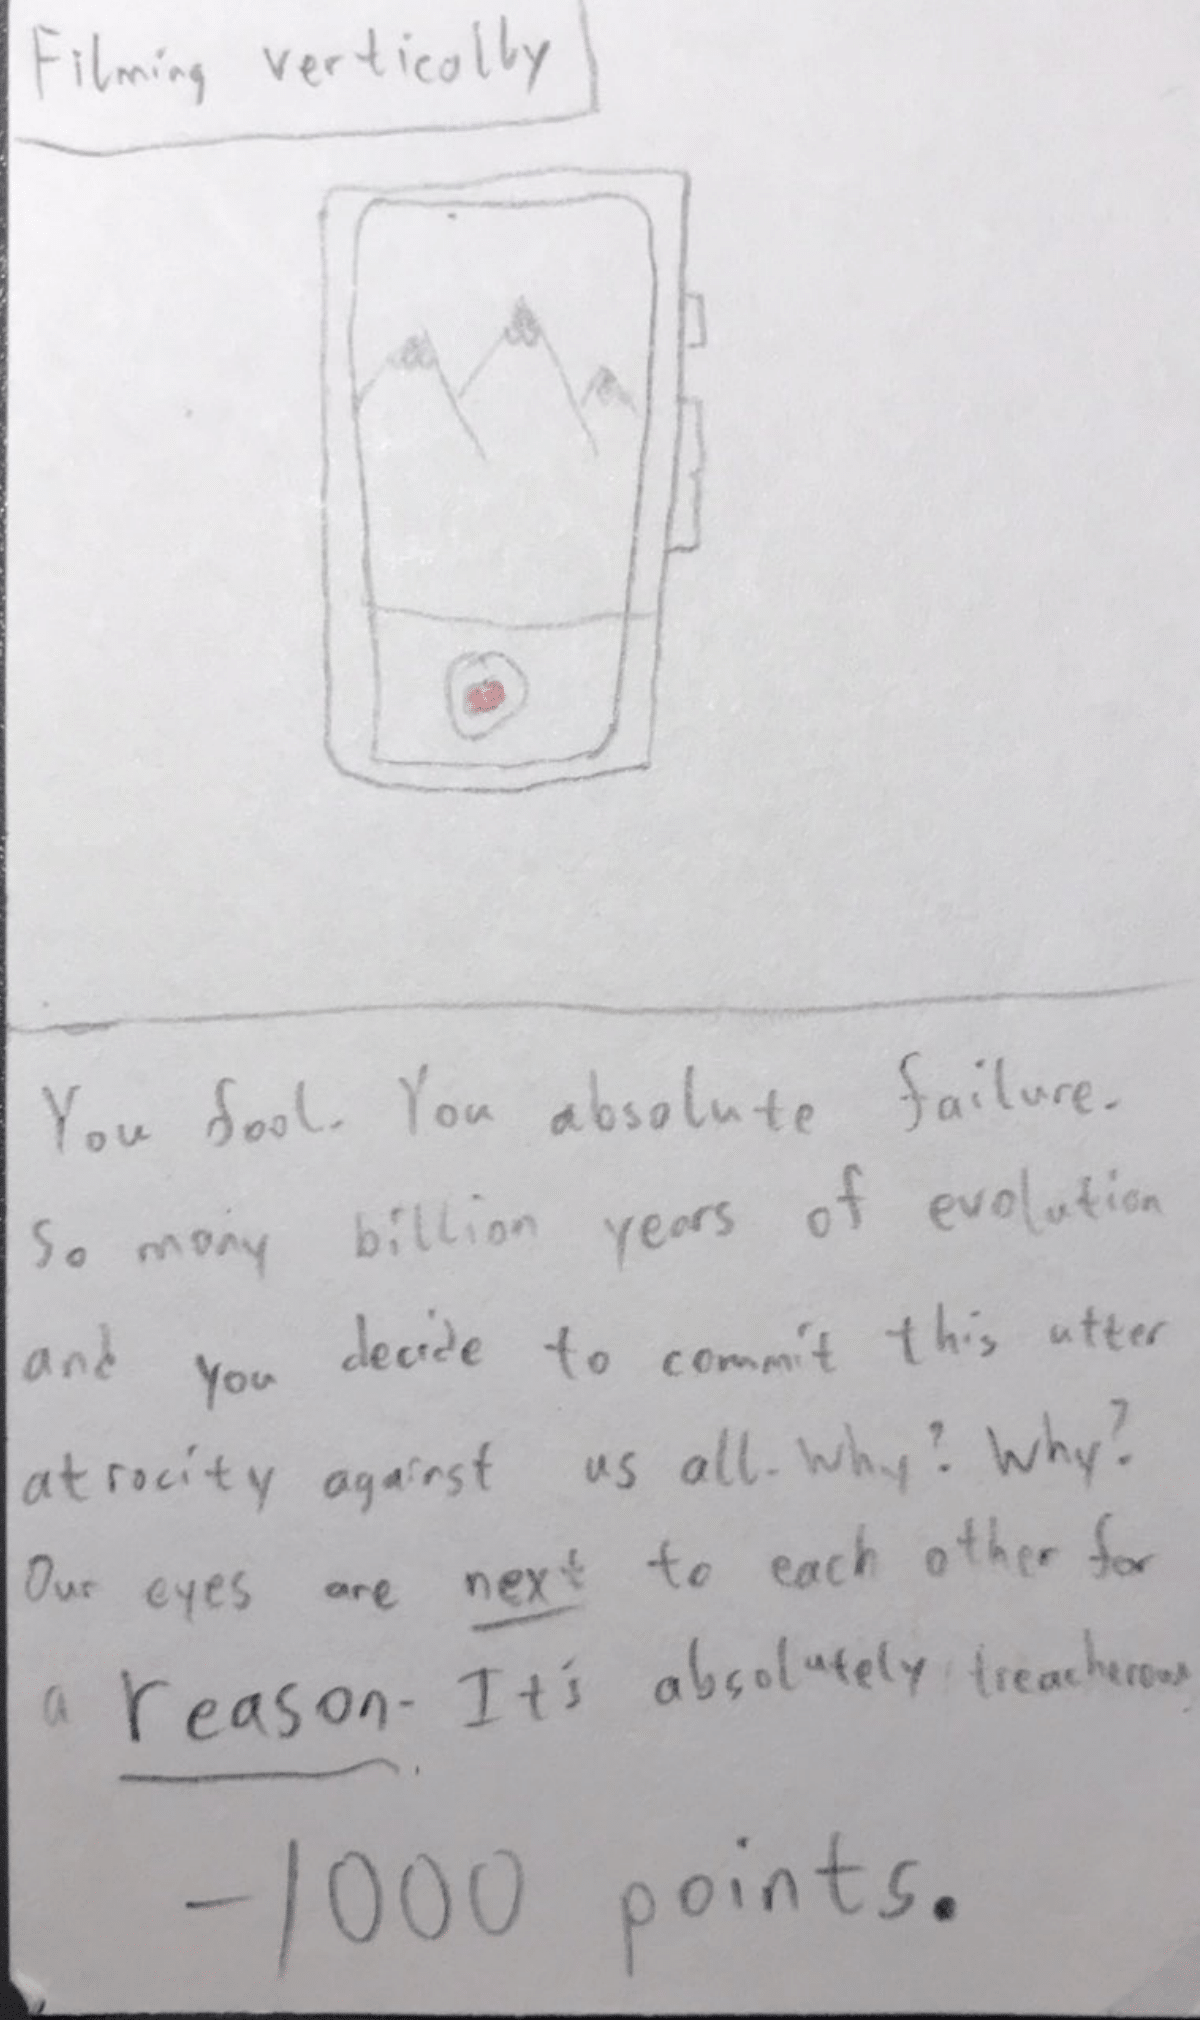 Filming vertically
You fool. You absolute failure.
So many billion years of evolution
and you decide to commit this utter
atrocity against us all. Why? Why?
Our eyes are next to each other for
a reason. It's absolutely treacherous
-1000 points.